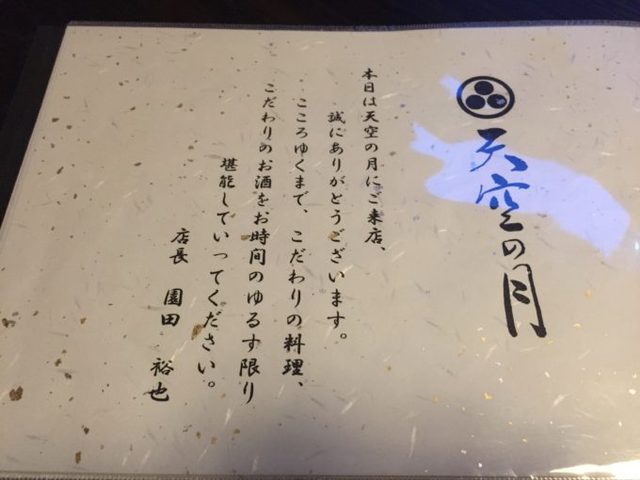 天空の月
本日は天空の月にご来店、
誠にありがとうございます。
こころゆくまで、こだわりの料理、
こだわりのお酒をお時間のゆるす限り
堪能していってください。
店長 園田 裕也